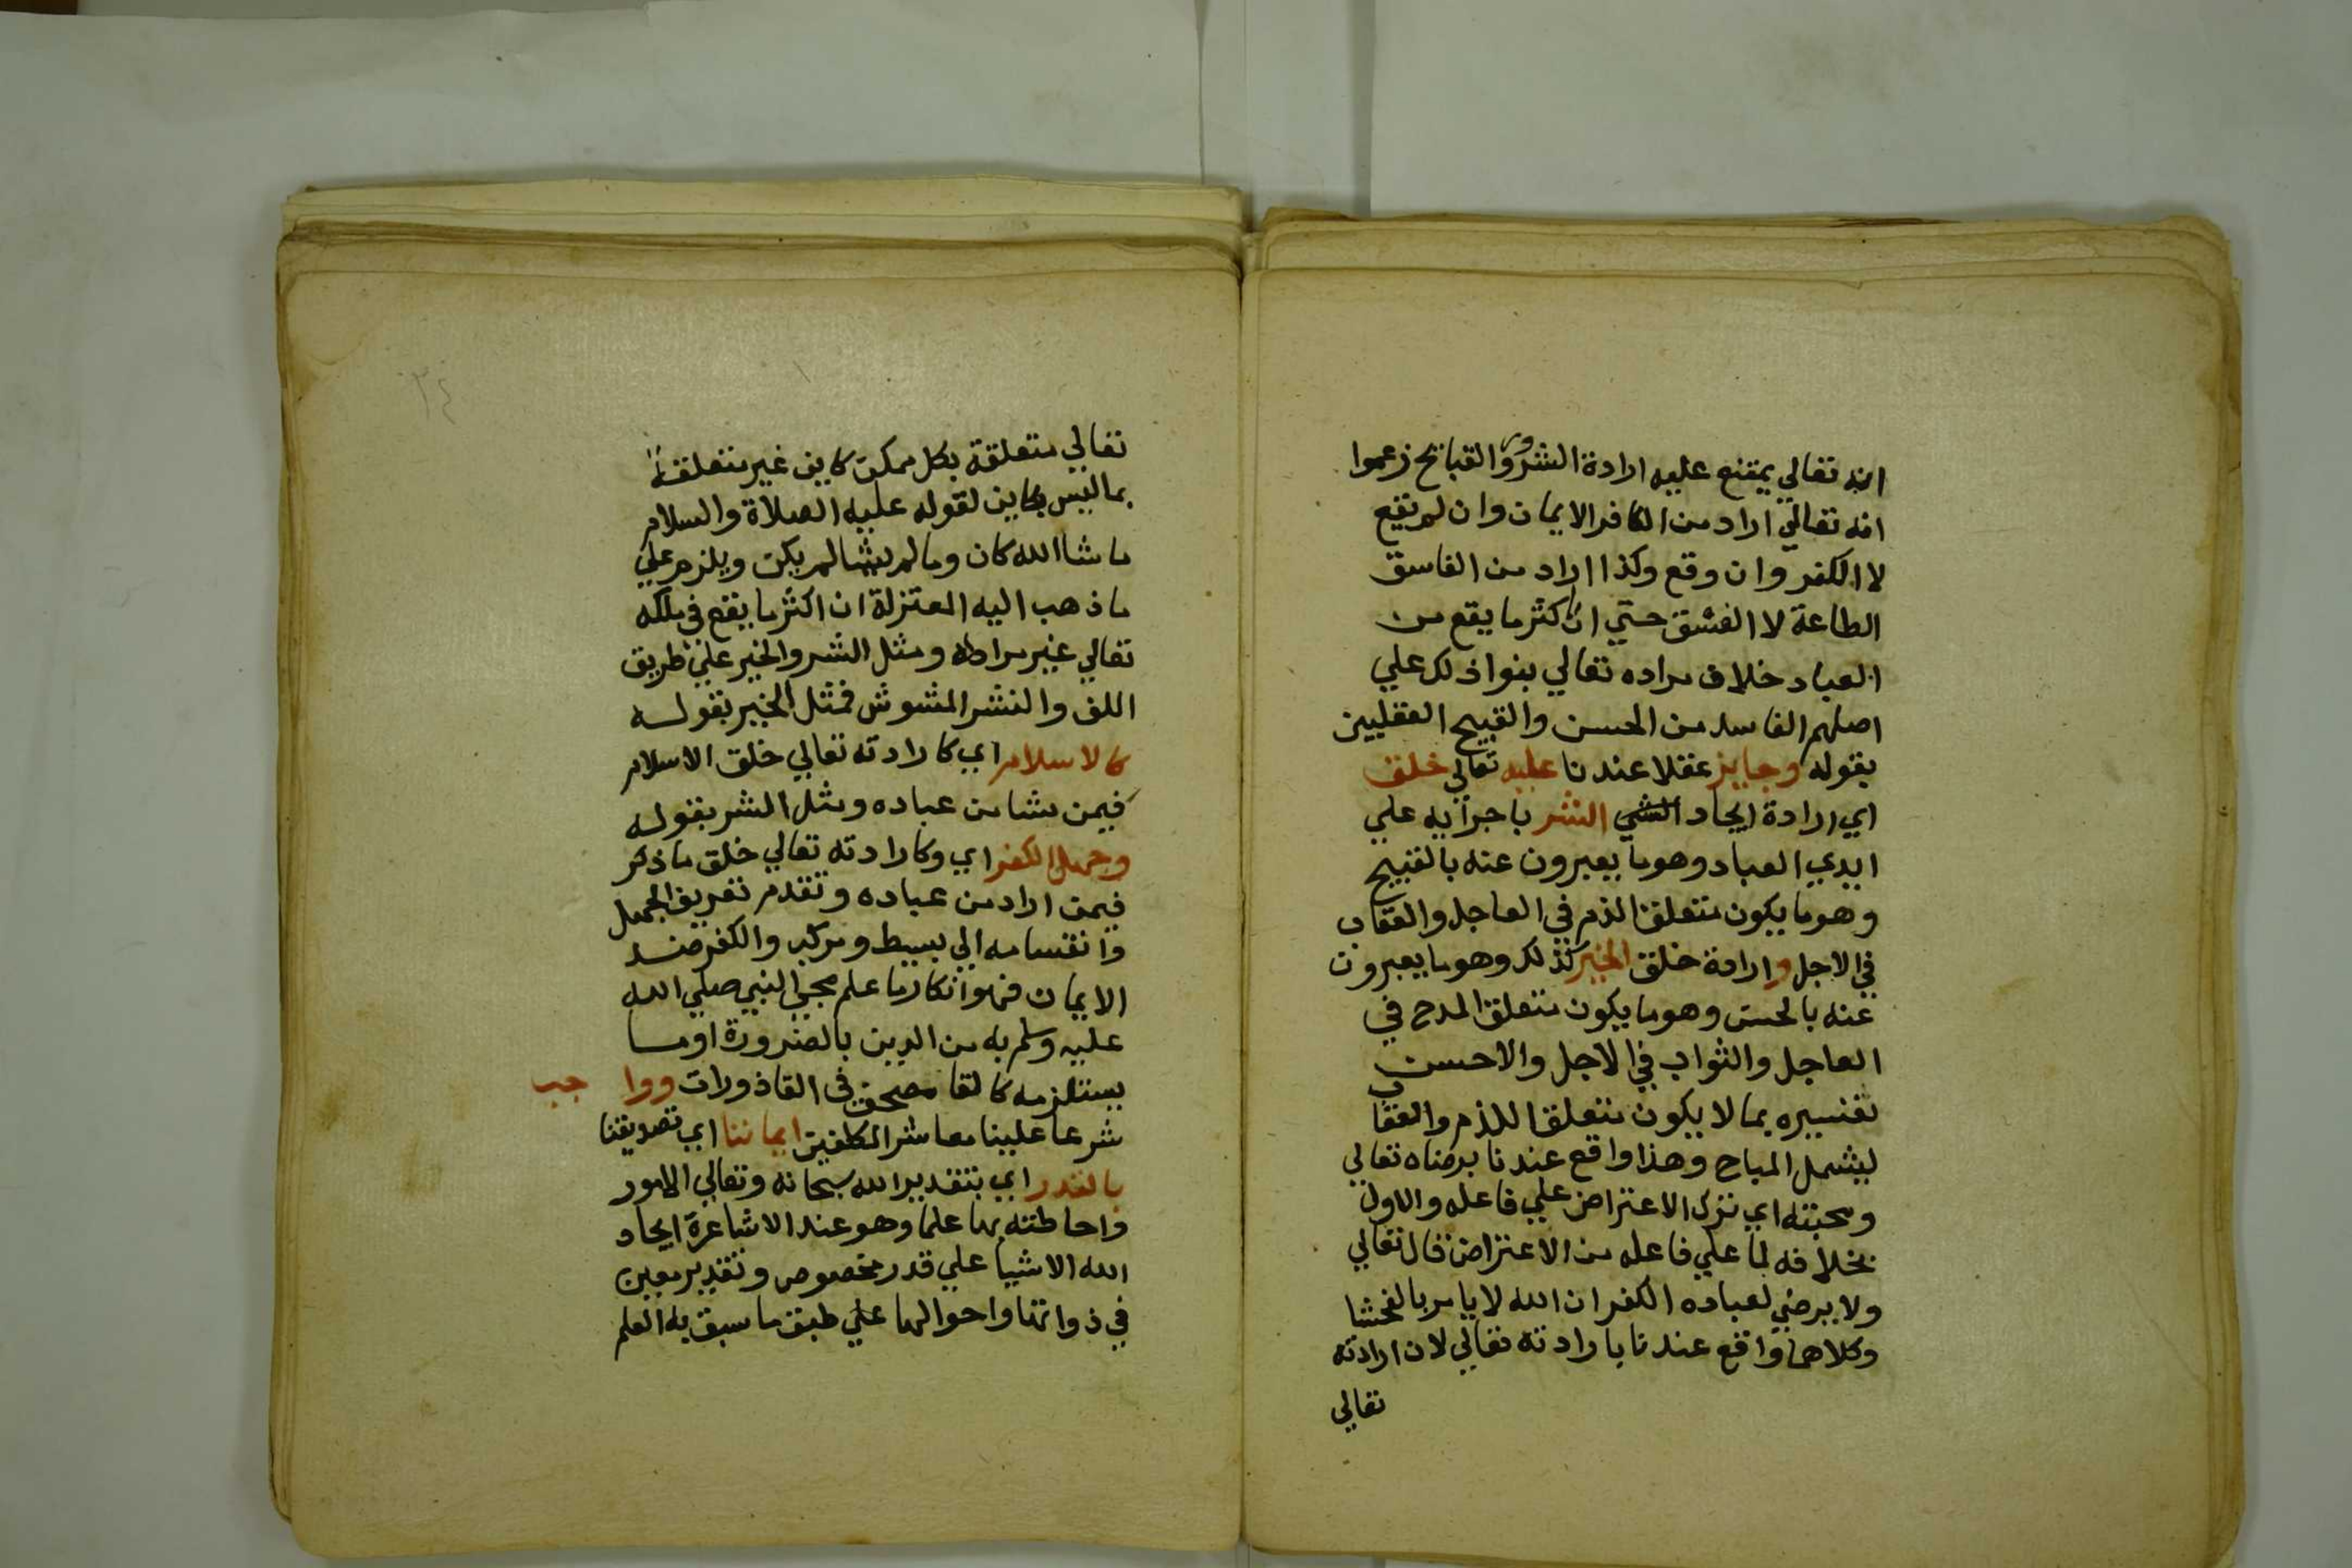 انه تعالي يمتنع عليه ارادة الشرور والقبايح زعموا
انه تعالي اراد من الكافر الايمان وان لم يقع
لا الكفر وان وقع وكذا اراد من الفاسق
الطاعة لا الفسق حتي ان اكثر ما يقع من
العباد خلاف مراده تعالي بنوا ذلك علي
اصلهم الفاسد من الحسن والقبيح العقليين
بقوله وجايز عقلا عندنا عليه تعالي خلق
اي ارادة ايجاد الشر باجرايه علي
ايدي العباد وهو ما يعبرون عنه بالقبيح
وهو ما يكون متعلق الذم في العاجل والعقاب
في الاجل وارادة خلق الخير كذلك وهو ما يعبرون
عنه بالحسن وهو ما يكون متعلق المدح في
العاجل والثواب في الاجل والاحسن
تفسيره بما لا يكون متعلقا للذم والعقاب
ليشمل المباح وهذا واقع عندنا برضاه تعالي
ومحبته اي ترك الاعتراض علي فاعله والاول
بخلافه لما علي فاعله من الاعتراض قال تعالي
ولا يرضي لعباده الكفر ان الله لا يامر بالفحشا
وكلاهما واقع عندنا بارادته تعالي لان ارادته
تعالي
٣٤
تعالي متعلقة بكل ممكن كاين غير متعلقة
بما ليس بكاين لقوله عليه الصلاة والسلام
ما شا الله كان وما لم يشا لم يكن ويلزم علي
ما ذهب اليه المعتزلة ان اكثر ما يقع في ملكه
تعالي غير مراد له ومثل الشر والخير علي طريق
اللف والنشر المشوش فمثل الخير بقوله
كالاسلام اي كارادته تعالي خلق الاسلام
فيمن شا من عباده ومثل الشر بقوله
وجهل الكفر اي وكارادته تعالي خلق ما ذكر
فيمن اراد من عباده وتقدم تعريف الجهل
وانقسامه الي بسيط ومركب والكفر ضد
الايمان فهو انكار ما علم مجي النبي صلي الله
عليه وسلم به من الدين بالضرورة او ما
يستلزمه كالقا مصحف في القاذورات وواجب
شرعا علينا معاشر المكلفين ايماننا اي تصديقنا
بالقدر اي بتقدير الله سبحانه وتعالي الامور
واحاطته بها علما وهو عند الاشاعرة ايجاد
الله الاشيا علي قدر مخصوص وتقدير معين
في ذواتها واحوالها علي طبق ما سبق به العلم